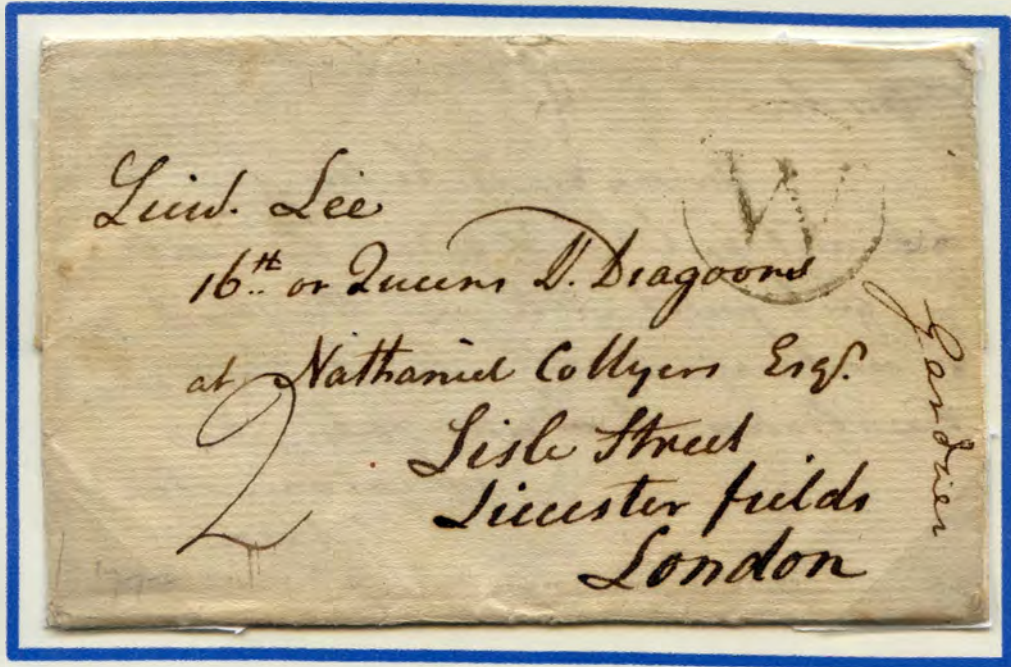 Lieut. Lee
16th or Queens D. Dragoons
at Nathaniel Collyers Esqr.
Lisle Street
Leicester fields
London
W
2